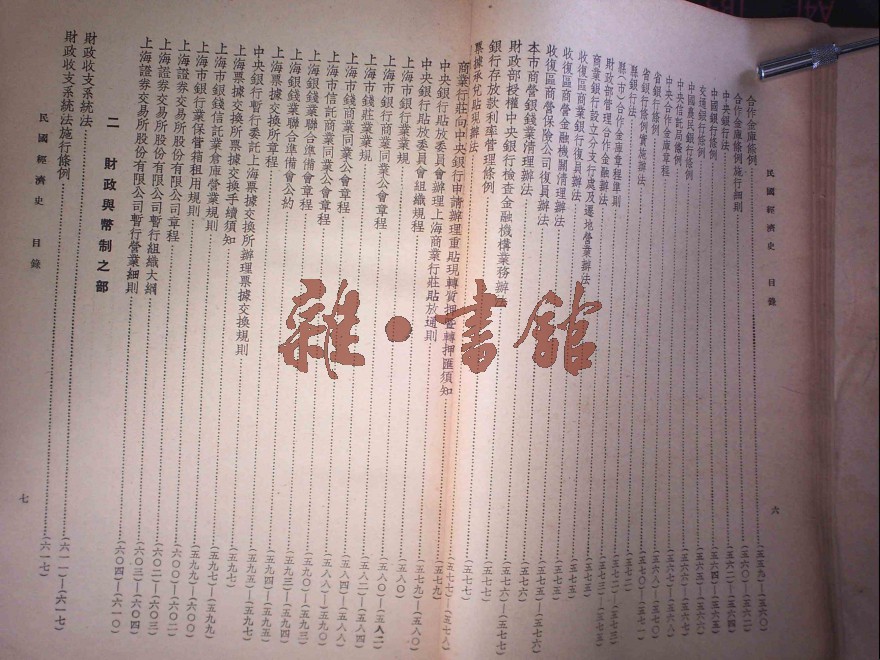 民國經濟史 目錄
六
合作金庫條例……(五五九)—(五六〇)
合作金庫條例施行細則……(五六〇)—(五六二)
中央銀行法……(五六二)—(五六四)
中國銀行條例……(五六四)—(五六五)
交通銀行條例……(五六五)—(五六六)
中國農民銀行條例……(五六六)—(五六七)
中央信託局條例……
中央合作金庫章程……
省銀行條例……(五六八)—(五七〇)
省銀行條例實施辦法……
縣銀行法……
縣(市)合作金庫章程準則……
財政部管理合作金融辦法……
商業銀行設立分支行處及遷地營業辦法……
收復區商業銀行復員辦法……(五七五)
收復區商營金融機關清理辦法……(五七五)
收復區商營保險公司復員辦法……(五七五)
本市商營銀錢業清理辦法……(五七五)—(五七六)
財政部授權中央銀行檢查金融機構業務辦法……(五七六)—(五七七)
銀行存放款利率管理條例……(五七七)
票據承兌貼現辦法……(五七七)
商業行莊向中央銀行申請辦理重貼現轉質押暨轉押匯須知……(五七七)—(五七八)
中央銀行貼放委員會辦理上海商業行莊貼放通則……(五七九)
中央銀行貼放委員會組織規程……(五七九)—(五八〇)
上海市銀行業業規……(五八〇)
上海市銀行商業同業公會章程……(五八〇)—(五八二)
上海市錢莊業業規……(五八二)—(五八四)
上海市錢商業同業公會章程……(五八四)—(五八八)
上海市信託商業同業公會章程……(五八八)—(五九〇)
上海銀錢業聯合準備會章程……(五九〇)—(五九三)
上海銀錢業聯合準備會公約……(五九三)—(五九四)
上海票據交換所章程……(五九四)
中央銀行暫行委託上海票據交換所辦理票據交換規則……(五九五)—(五九五)
上海票據交換所票據交換手續須知……(五九七)
上海市銀錢信託業倉庫營業規則……(五九七)—(五九九)
上海市銀行業保管箱租用規則……(五九九)—(六〇〇)
上海證券交易所股份有限公司章程……(六〇〇)—(六〇二)
上海證券交易所股份有限公司暫行組織大綱……(六〇二)—(六〇三)
上海證券交易所股份有限公司暫行營業細則……(六〇三)—(六〇四)
(六〇四)—(六一〇)
二 財政與幣制之部
財政收支系統法……(六一一)—(六一七)
財政收支系統法施行條例……(六一七)
民國經濟史 目錄
七
雜·書館